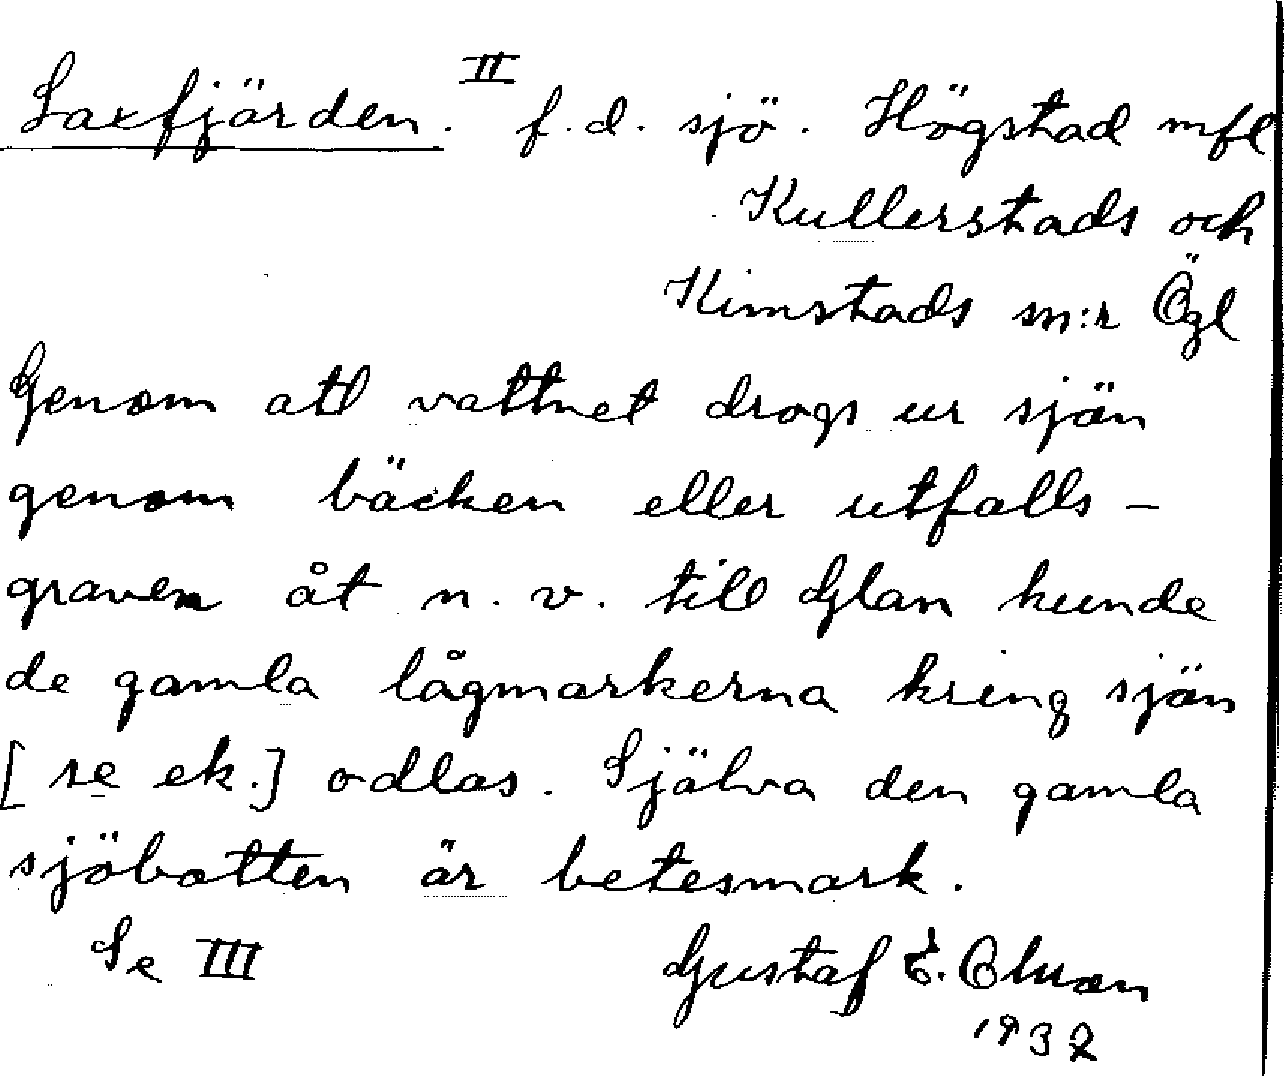 Saxfjärden. II f.d. sjö. Högstad mfl
Kullerstads och
Kimstads sn:r Ögl
Genom att vattnet drogs ur sjön
genom bäcken eller utfalls-
graven åt n.v. till Glan kunde
de gamla lågmarkerna kring sjön
[se ek.] odlas. Själva den gamla
sjöbotten är betesmark.
Se III Gustaf E.
1932